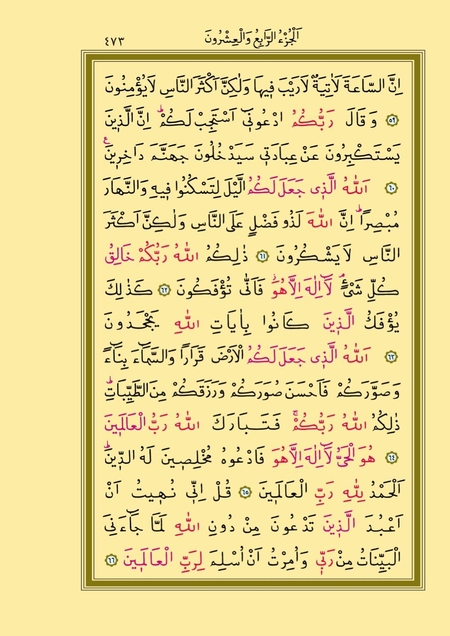 اَلْجُزْءُ الرَّابِعُ وَالْعِشْرُونَ ٤٧٣
اِنَّ السَّاعَةَ لَاٰتِيَةٌ لَارَيْبَ فِيهَا وَلٰكِنَّ اَكْثَرَ النَّاسِ لَايُؤْمِنُونَ
﴿٥٩﴾ وَقَالَ رَبُّكُمُ ادْعُونٖٓى اَسْتَجِبْ لَكُمْۜ اِنَّ الَّذٖينَ
يَسْتَكْبِرُونَ عَنْ عِبَادَتٖى سَيَدْخُلُونَ جَهَنَّمَ دَاخِرٖينَ
﴿٦٠﴾ اَللّٰهُ الَّذٖى جَعَلَ لَكُمُ الَّيْلَ لِتَسْكُنُوا فٖيهِ وَالنَّهَارَ
مُبْصِرًاۜ اِنَّ اللّٰهَ لَذُو فَضْلٍ عَلَى النَّاسِ وَلٰكِنَّ اَكْثَرَ
النَّاسِ لَايَشْكُرُونَ ﴿٦١﴾ ذٰلِكُمُ اللّٰهُ رَبُّكُمْ خَالِقُ
كُلِّ شَیْءٍۘ لَٓااِلٰهَ اِلَّاهُوَۘ فَاَنّٰى تُؤْفَكُونَ ﴿٦٢﴾ كَذٰلِكَ
يُؤْفَكُ الَّذٖينَ كَانُوا بِاٰيَاتِ اللّٰهِ يَجْحَدُونَ
﴿٦٣﴾ اَللّٰهُ الَّذٖى جَعَلَ لَكُمُ الْاَرْضَ قَرَارًا وَالسَّمَٓاءَ بِنَٓاءً
وَصَوَّرَكُمْ فَاَحْسَنَ صُوَرَكُمْ وَرَزَقَكُمْ مِنَ الطَّيِّبَاتِۜ
ذٰلِكُمُ اللّٰهُ رَبُّكُمْۚ فَتَبَارَكَ اللّٰهُ رَبُّ الْعَالَمٖينَ
﴿٦٤﴾ هُوَ الْحَیُّ لَٓااِلٰهَ اِلَّاهُوَ فَادْعُوهُ مُخْلِصٖينَ لَهُ الدّٖينَۜ
اَلْحَمْدُ لِلّٰهِ رَبِّ الْعَالَمٖينَ ﴿٦٥﴾ قُلْ اِنّٖى نُهٖيتُ اَنْ
اَعْبُدَ الَّذٖينَ تَدْعُونَ مِنْ دُونِ اللّٰهِ لَمَّا جَٓاءَنِىَ
الْبَيِّنَاتُ مِنْ رَبّٖى وَاُمِرْتُ اَنْ اُسْلِمَ لِرَبِّ الْعَالَمٖينَ ﴿٦٦﴾